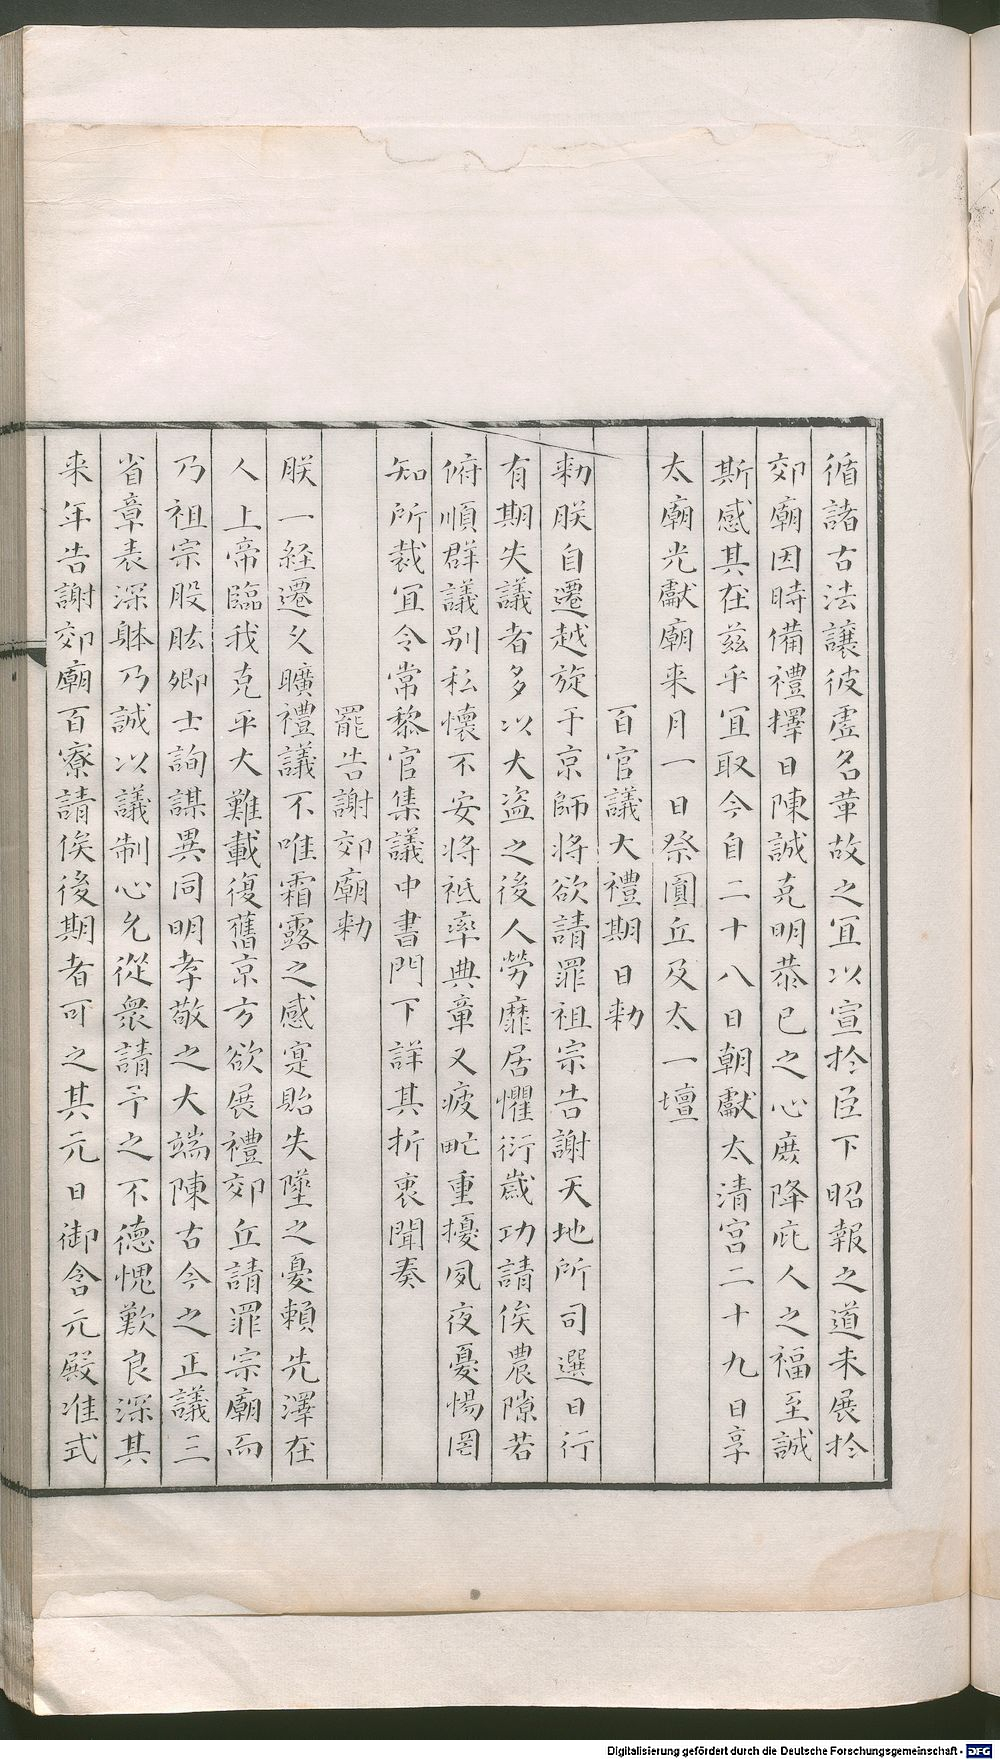 循諸古法讓彼虛名華故之宜以宣扵臣下昭報之道未展扵
郊廟因時備禮擇日陳誠克明恭已之心庶降庇人之福至誠
斯感其在兹乎宜取今自二十八日朝獻太清宮二十九日享
太廟光獻廟来月一日祭圎丘及太一壇
百官議大禮期日勑
勑朕自遷越旋于京師将欲請罪祖宗告謝天地所司選日行
有期失議者多以大盗之後人勞靡居懼衍歲功請俟農隙若
俯順群議别私懷不安将祗率典章又疲甿重擾夙夜憂惕罔
知所裁宜令常黎官集議中書門下詳其折衷聞奏
罷告謝郊廟勑
朕一経遷乆曠禮議不唯霜露之感寔貽失墜之憂賴先澤在
人上帝臨我克平大難載復舊京方欲展禮郊丘請罪宗廟而
乃祖宗股肱卿士詢謀異同明孝敬之大端陳古今之正議三
省章表深躰乃誠以議制心允從衆請予之不德愧歎良深其
来年告謝郊廟百寮請俟後期者可之其元日御含元殿准式
Digitalisierung gefördert durch die Deutsche Forschungsgemeinschaft - DFG